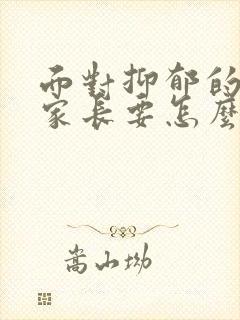 而對抑郁的
家長要怎麼
嵩山坳